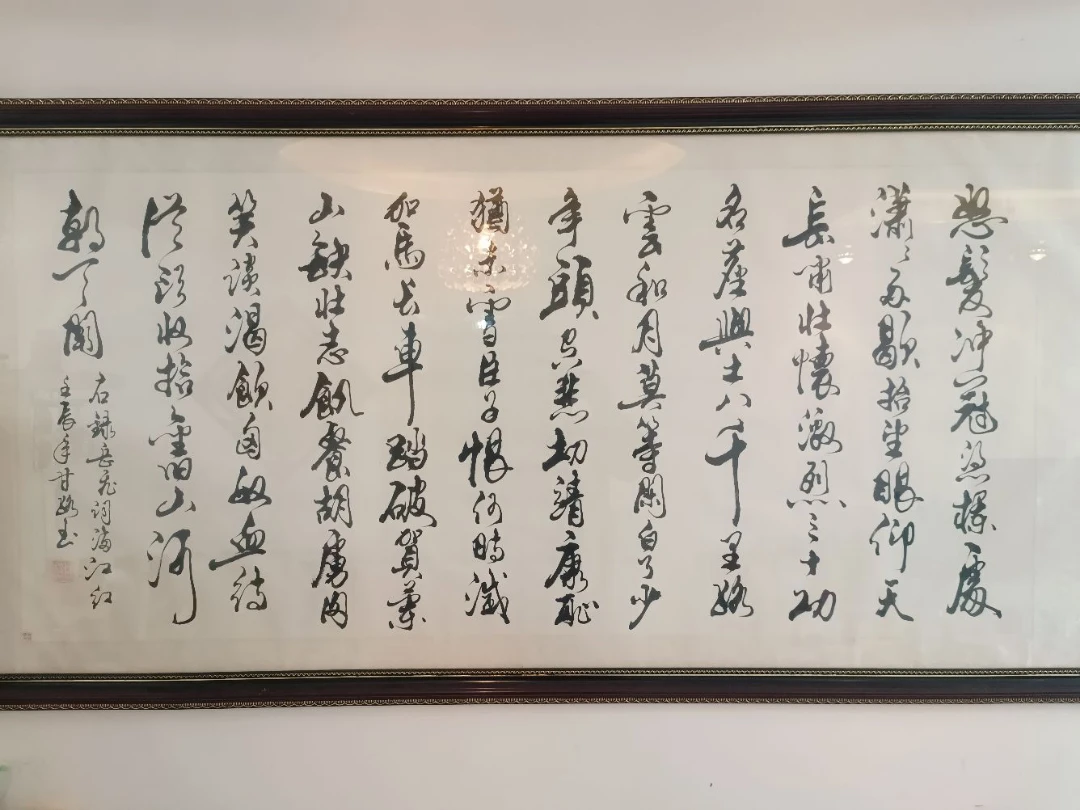 怒髮冲冠憑欄處
瀟瀟雨歇抬望眼仰天
長嘯壯懷激烈三十功
名塵與土八千里路
雲和月莫等閑白了少
年頭空悲切靖康耻
猶未雪臣子恨何時滅
駕長車踏破賀蘭
山缺壯志飢餐胡虜肉
笑談渴飲匈奴血待
從頭收拾舊山河
朝天闕
右錄岳飛詞滿江紅
壬辰年甘路书